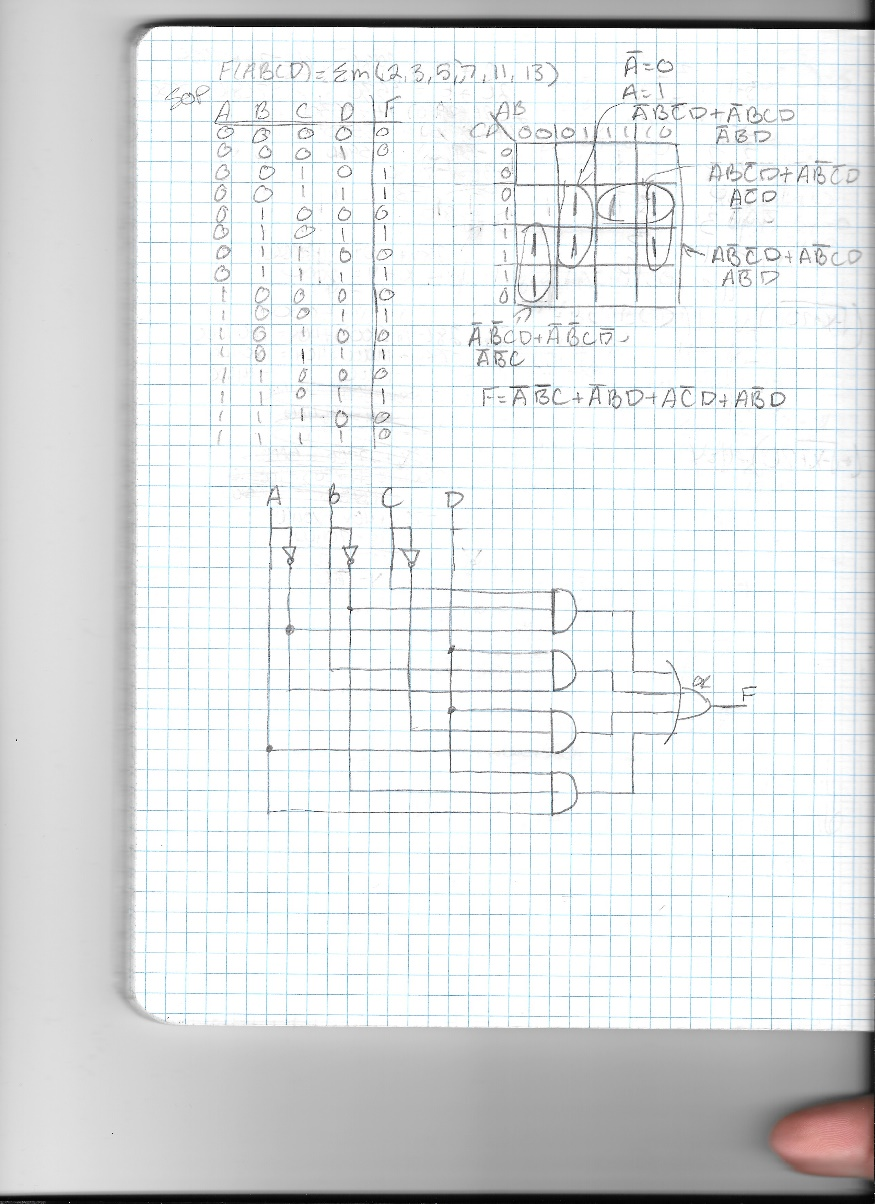 F(ABCD)=Σm(2,3,5,7,11,13)
SOP
A B C D F
0 0 0 0 0
0 0 0 1 0
0 0 1 0 1
0 0 1 1 1
0 1 0 0 0
0 1 0 1 1
0 1 1 0 0
0 1 1 1 1
1 0 0 0 0
1 0 0 1 1
1 0 1 0 0
1 0 1 1 1
1 1 0 0 0
1 1 0 1 1
1 1 1 0 0
1 1 1 1 0
A̅=0
A=1
AB
CD 00 01 11 10
0
0
0 1 1 1
1
1 1 1 1
1
1 1
0
A̅BC̅D+A̅BCD
A̅BD
ABC̅D+AB̅C̅D
AC̅D
AB̅C̅D+AB̅CD
AB̅D
A̅B̅CD+A̅B̅CD̅
A̅B̅C
F=A̅B̅C+A̅BD+AC̅D+AB̅D
A B C D
OR
F